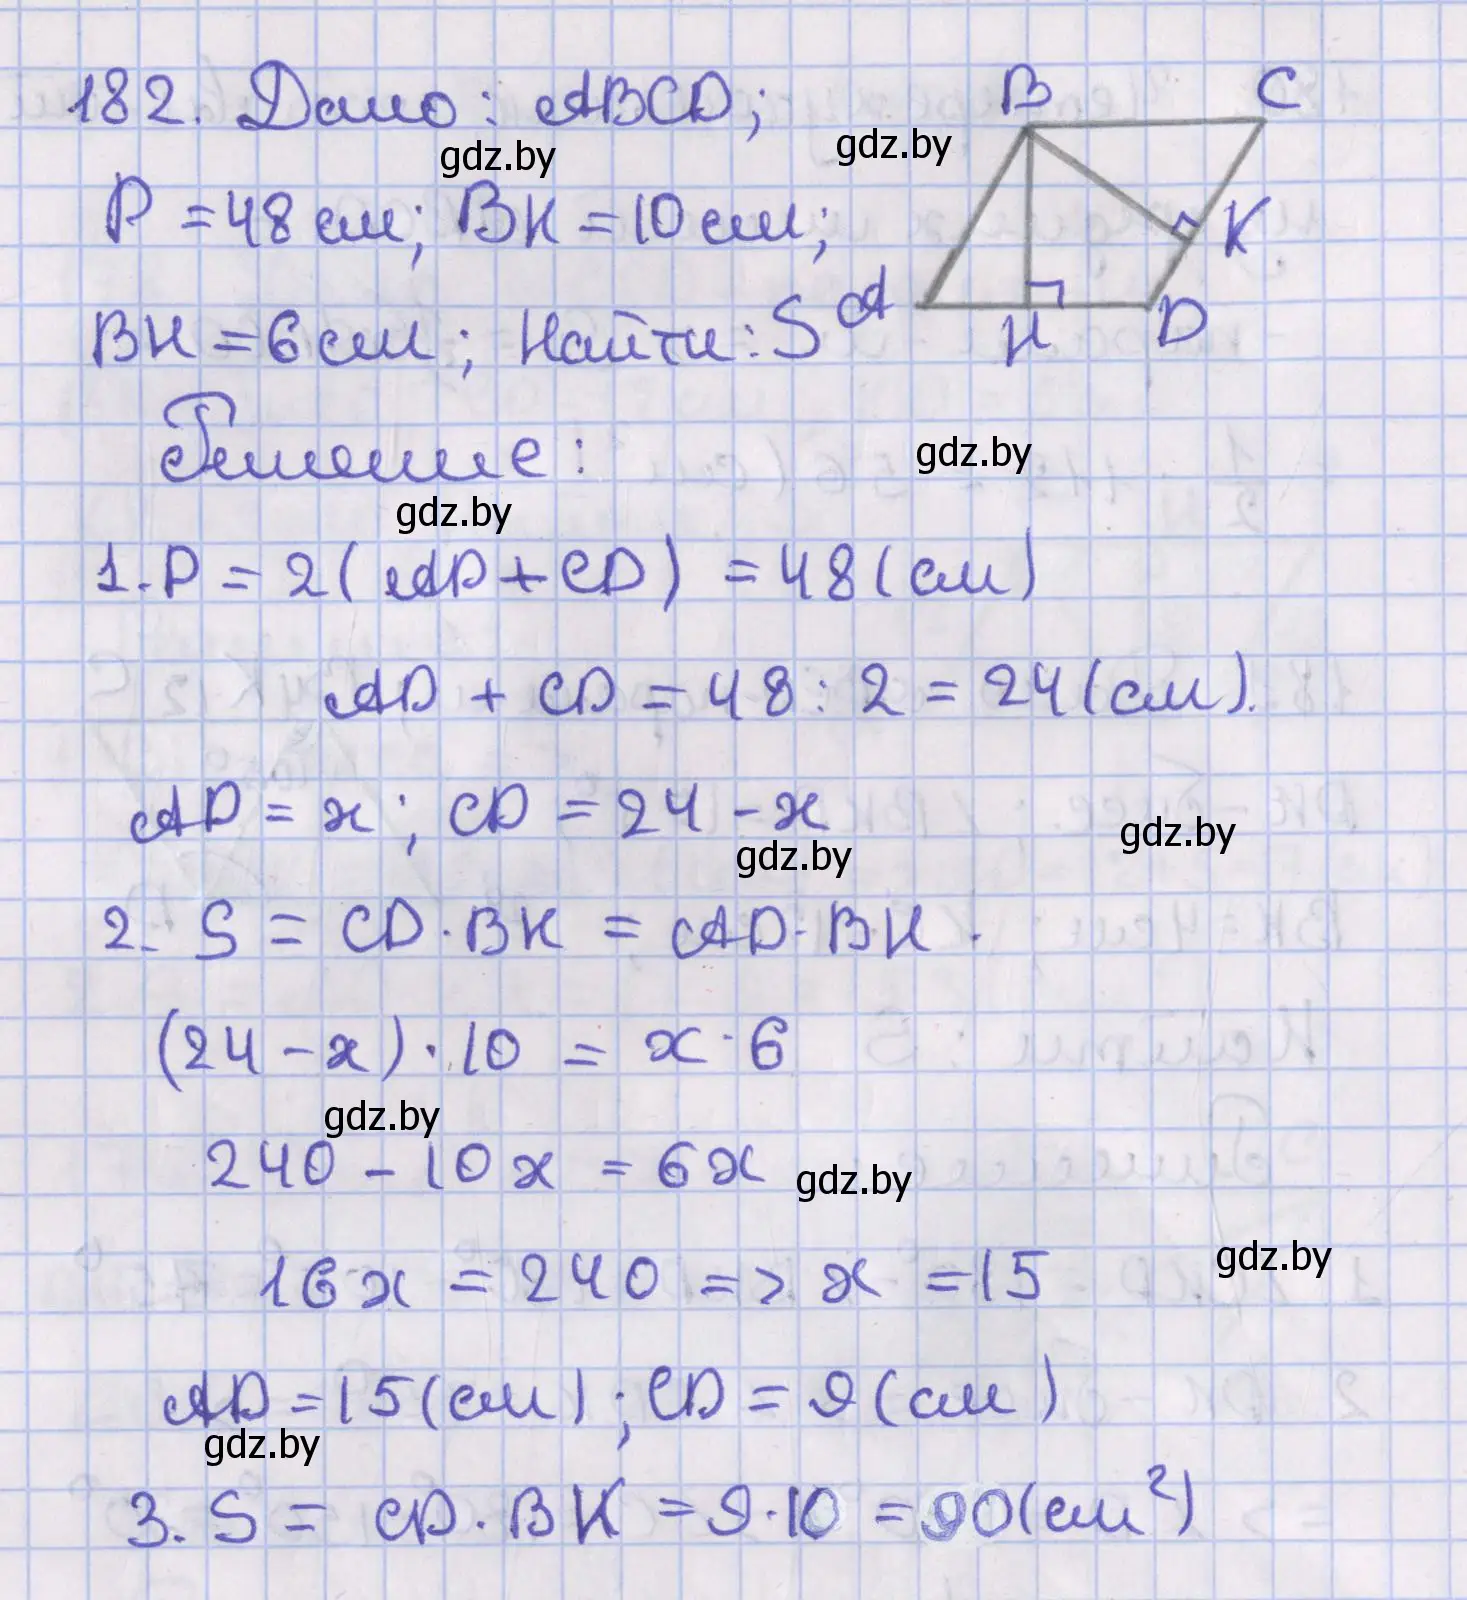 182. Дано: ABCD;
B C
gdz.by
gdz.by
P = 48 см; BK = 10 см;
K
BH = 6 см; Найти: S
A H D
Решение:
gdz.by
gdz.by
1. P = 2(AD + CD) = 48 (см)
AD + CD = 48 : 2 = 24 (см).
AD = x; CD = 24 - x
gdz.by
gdz.by
2. S = CD · BK = AD · BH.
(24 - x) · 10 = x · 6
gdz.by
240 - 10x = 6x
gdz.by
gdz.by
16x = 240 => x = 15
AD = 15 (см); CD = 9 (см)
gdz.by
3. S = CD · BK = 9 · 10 = 90 (см²)